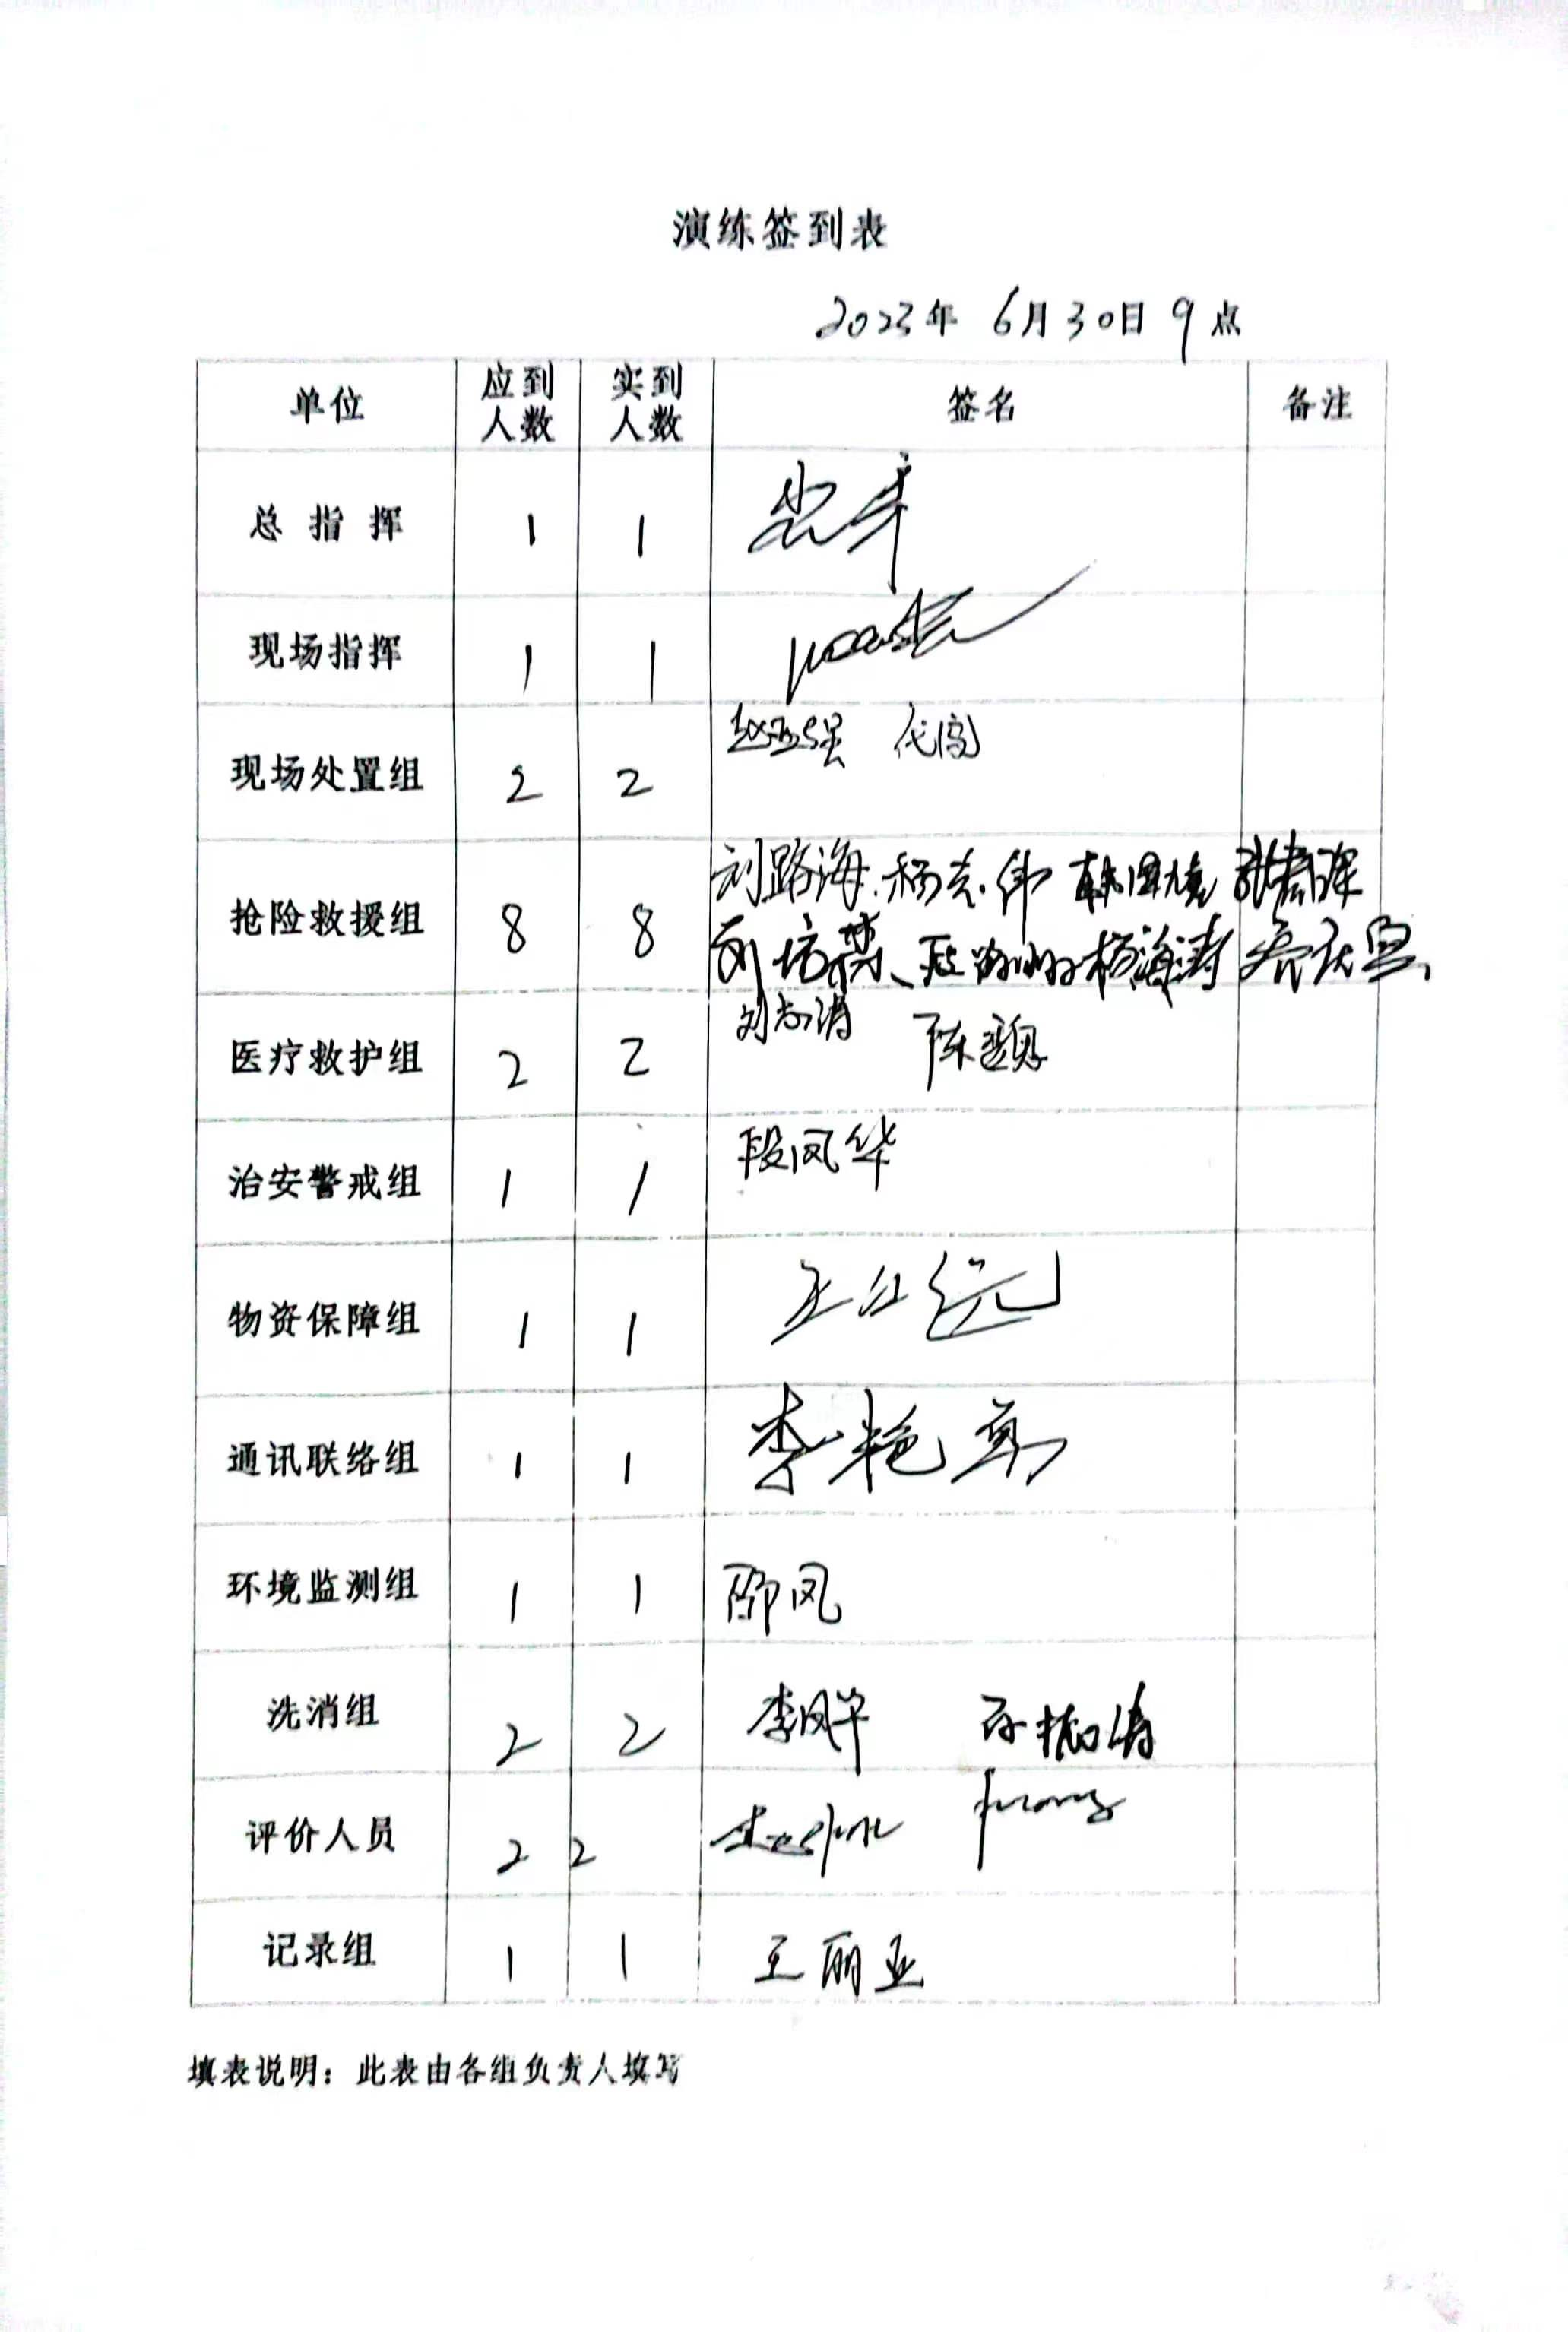 演练签到表
2023年 6月30日9点
单位 应到人数 实到人数 签名 备注
总 指 挥 1 1
现场指挥 1 1
现场处置组 2 2 赵亚强 代闯
抢险救援组 8 8 刘路海 杨克伟 韩国 张
刘培 段 杨海涛
医疗救护组 2 2 刘志涛 陈
治安警戒组 1 1 段凤华
物资保障组 1 1 王红
通讯联络组 1 1 李艳
环境监测组 1 1 邵凤
洗消组 2 2 李凤华 孙振涛
评价人员 2 2
记录组 1 1 王丽亚
填表说明：此表由各组负责人填写